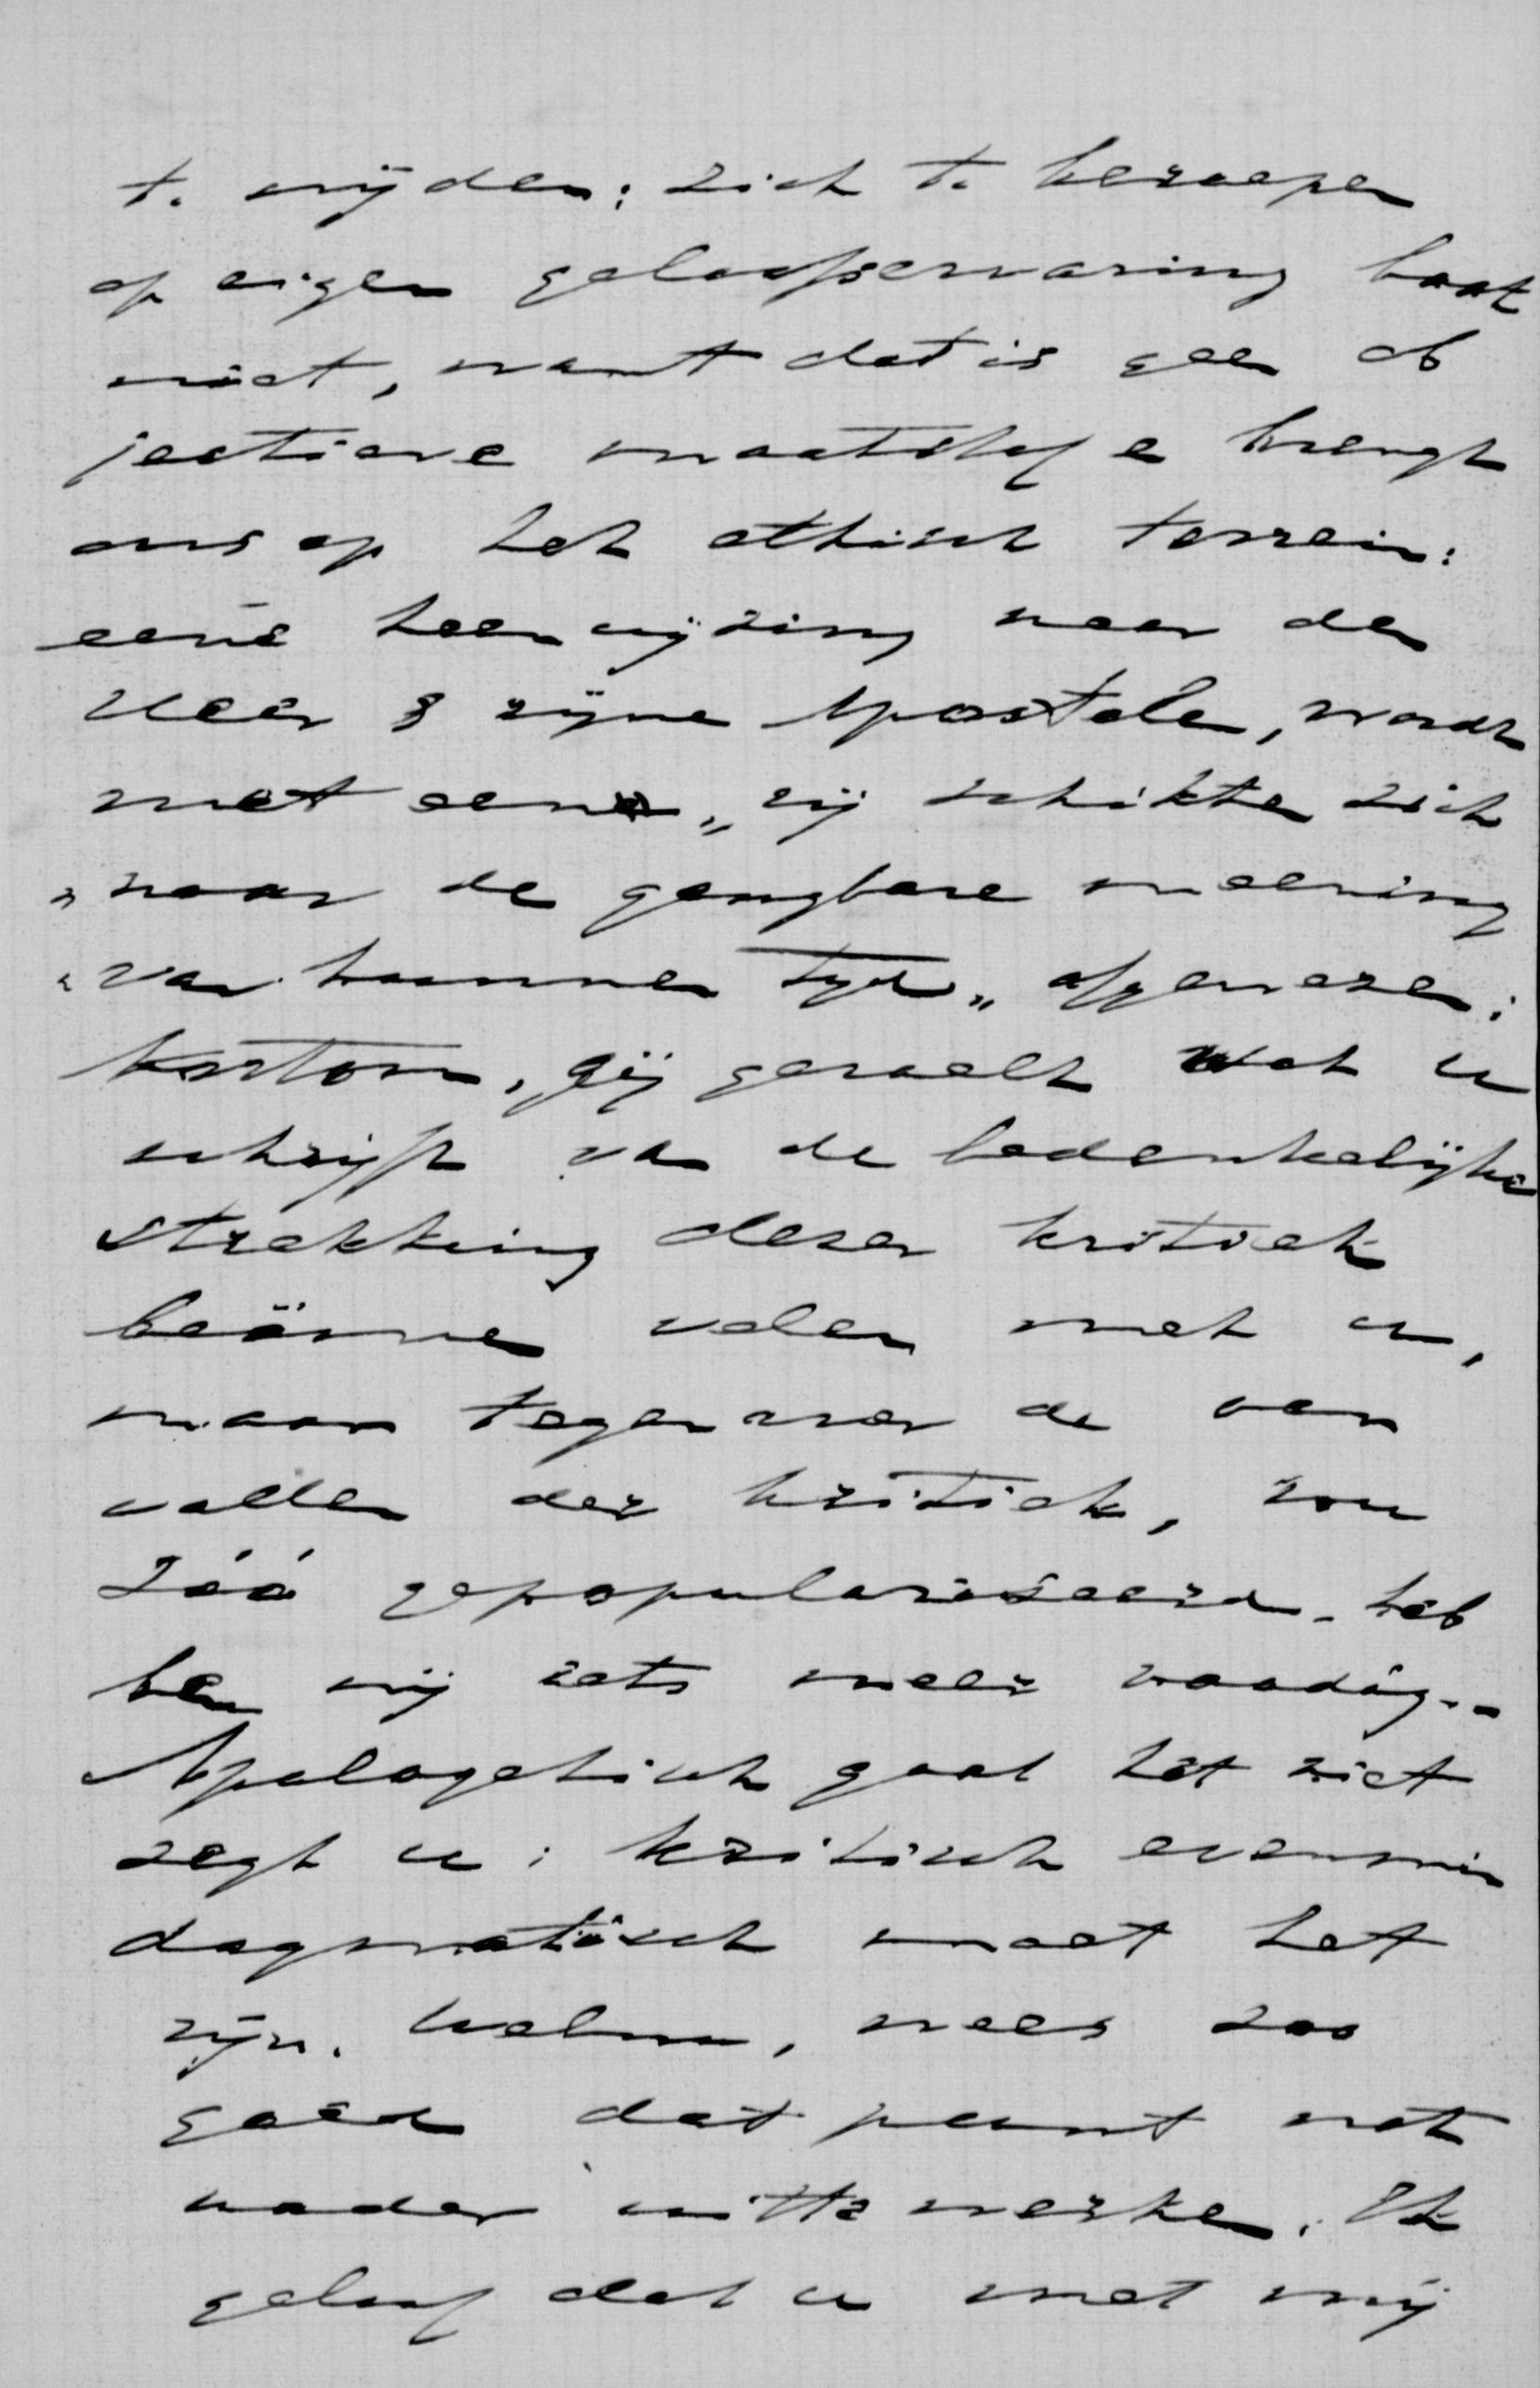 te mijden: zich te beroepen
op eigen geloofservaring baat
niet, want dat is geen ob
jectieve maatstaf en brengt
ons op het ethisch terrein:
eene heenwijzing naar den
Heer & zijne Apostelen, wordt
met eene „zij schikten zich
„naar de gangbare meening
„van hunnen tijd„ afgewezen:
kortom, gij gevoelt wat u
schrijft van de bedenkelijke
strekking dezer kritiek
beämen velen met u,
maar tegenover de aan
vallen der kritiek, nu
zóó gepopulariseerd - heb
ben wij iets meer noodig. -
Apologetisch gaat het niet
zegt u: kritisch evenmin
dogmatisch moet het
zijn. Welnu, wees zoo
goed dat punt wat
nader uit te werken. Ik
geloof dat u met mij